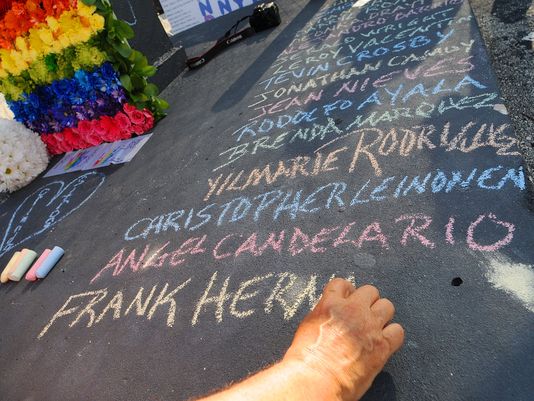 NNY
LEROY VALENTI
TEVIN CROSBY
JONATHAN CAMUY
JEAN NIEVES
RODOLFO AYALA
BRENDA MARQUEZ
YILMARIE RODRIGUEZ
CHRISTOPHER LEINONEN
ANGEL CANDELARIO
FRANK HERN
Canon